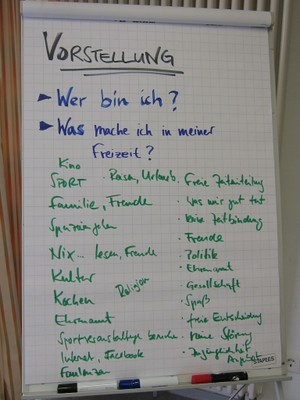 VORSTELLUNG
► Wer bin ich?
► Was mache ich in meiner
Freizeit?
Kino
SPORT
• Reisen, Urlaub
Familie, Freunde
Spazieren
Nix... lesen, Freunde
Kultur
Kochen
Religion
Ehrenamt
Sportveranstaltungen besuchen
Internet, Facebook
Faulenzen
• Freie Zeiteinteilung
• Was mir gut tut
• keine Zeitbindung
• Freunde
• Politik
• Ehrenamt
• Gesellschaft
• Spaß
• freie Entscheidung
• keine Störung
• Zugänglichkeit
Angebot
STAPLES